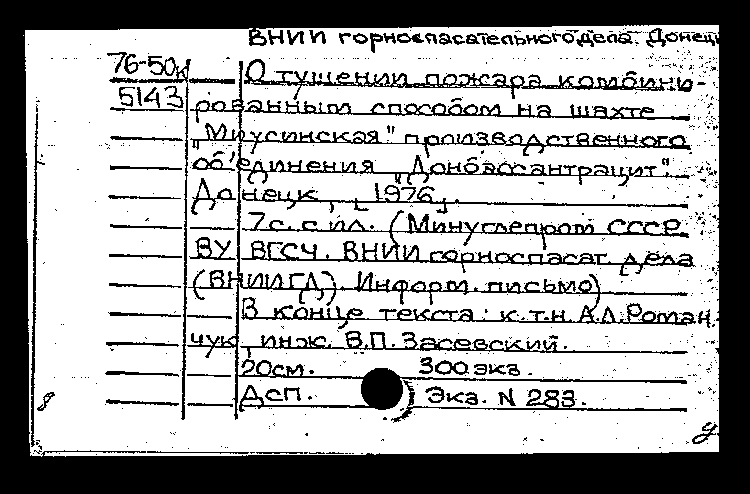 ВНИИ горноспасательного дела. Донецк
76-50к
5143
О тушении пожара комбини-
рованным способом на шахте
"Миусинская" производственного
об'единения „Донбассантрацит".
Донецк, [1976].
7с. с ил. (Минуглепром СССР.
ВУ ВГСЧ. ВНИИ горноспасат. дела
(ВНИИГД). Информ. письмо)
В конце текста: к.т.н. А.Л. Роман-
чук, инж. В.П. Засевский.
20см. 300 экз.
Дсп. Экз. N 283.
8